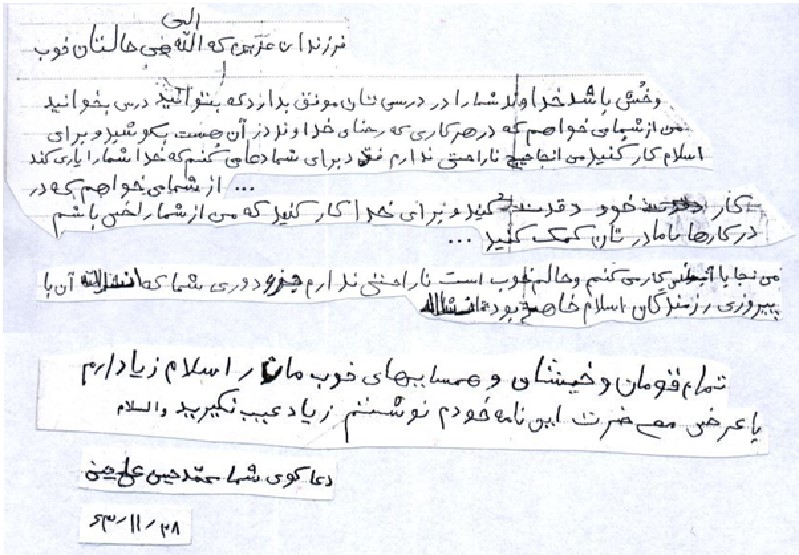 الی
فرزندان عزیزم که الله حالتان خوب
وخُش باشد خداوند شما را در درسی تان موفق بداردکه بتوانید درس بخوانید
من از شما می خواهم که در هر کاری که رضای خداوند در آن هست بکوشید و برای
اسلام کار کنید من انجا هیچ ناراحتی ندارم فقد برای شما دعا می کنم که خدا شما را یاری کند
... از شما می خواهم که در
کار خود دقت کنید و برای خدا کار کنید که من از شما راضی باشم
در کارها با مادرتان کمک کنید ...
من نجا با کار می کنم وحالم خوب است ناراحتی ندارم جزء دوری شما که انشالله آن با
پیروزی رزمندگان اسلام خاهد بود انشالله
تمام قومان و خیشان و همسایهای خوب مان را سلام زیاد دارم
با عرض معضرت این نامه خودم نوشتم زیاد عیب نگیرید والسلام
دعا گوی شما محمد حسین علی
۶۳/۱۱/۲۸